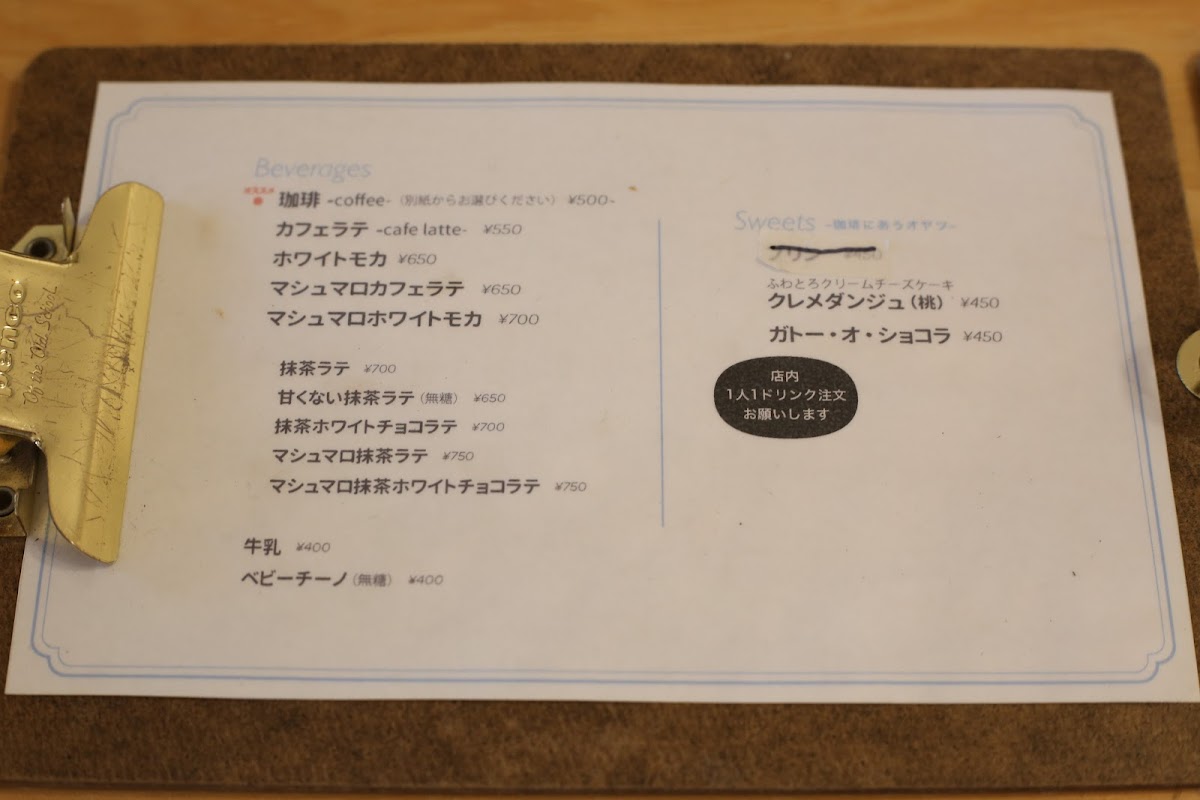 Beverages
オススメ
珈琲 -coffee- (別紙からお選びください) ¥500~
カフェラテ -cafe latte- ¥550
ホワイトモカ ¥650
マシュマロカフェラテ ¥650
マシュマロホワイトモカ ¥700
抹茶ラテ ¥700
甘くない抹茶ラテ (無糖) ¥650
抹茶ホワイトチョコラテ ¥700
マシュマロ抹茶ラテ ¥750
マシュマロ抹茶ホワイトチョコラテ ¥750
牛乳 ¥400
ベビーチーノ (無糖) ¥400
Sweets -珈琲にあうオヤツ-
プリン ¥450
ふわとろクリームチーズケーキ
クレメダンジュ (桃) ¥450
ガトー・オ・ショコラ ¥450
店内
1人1ドリンク注文
お願いします
penco
Old School